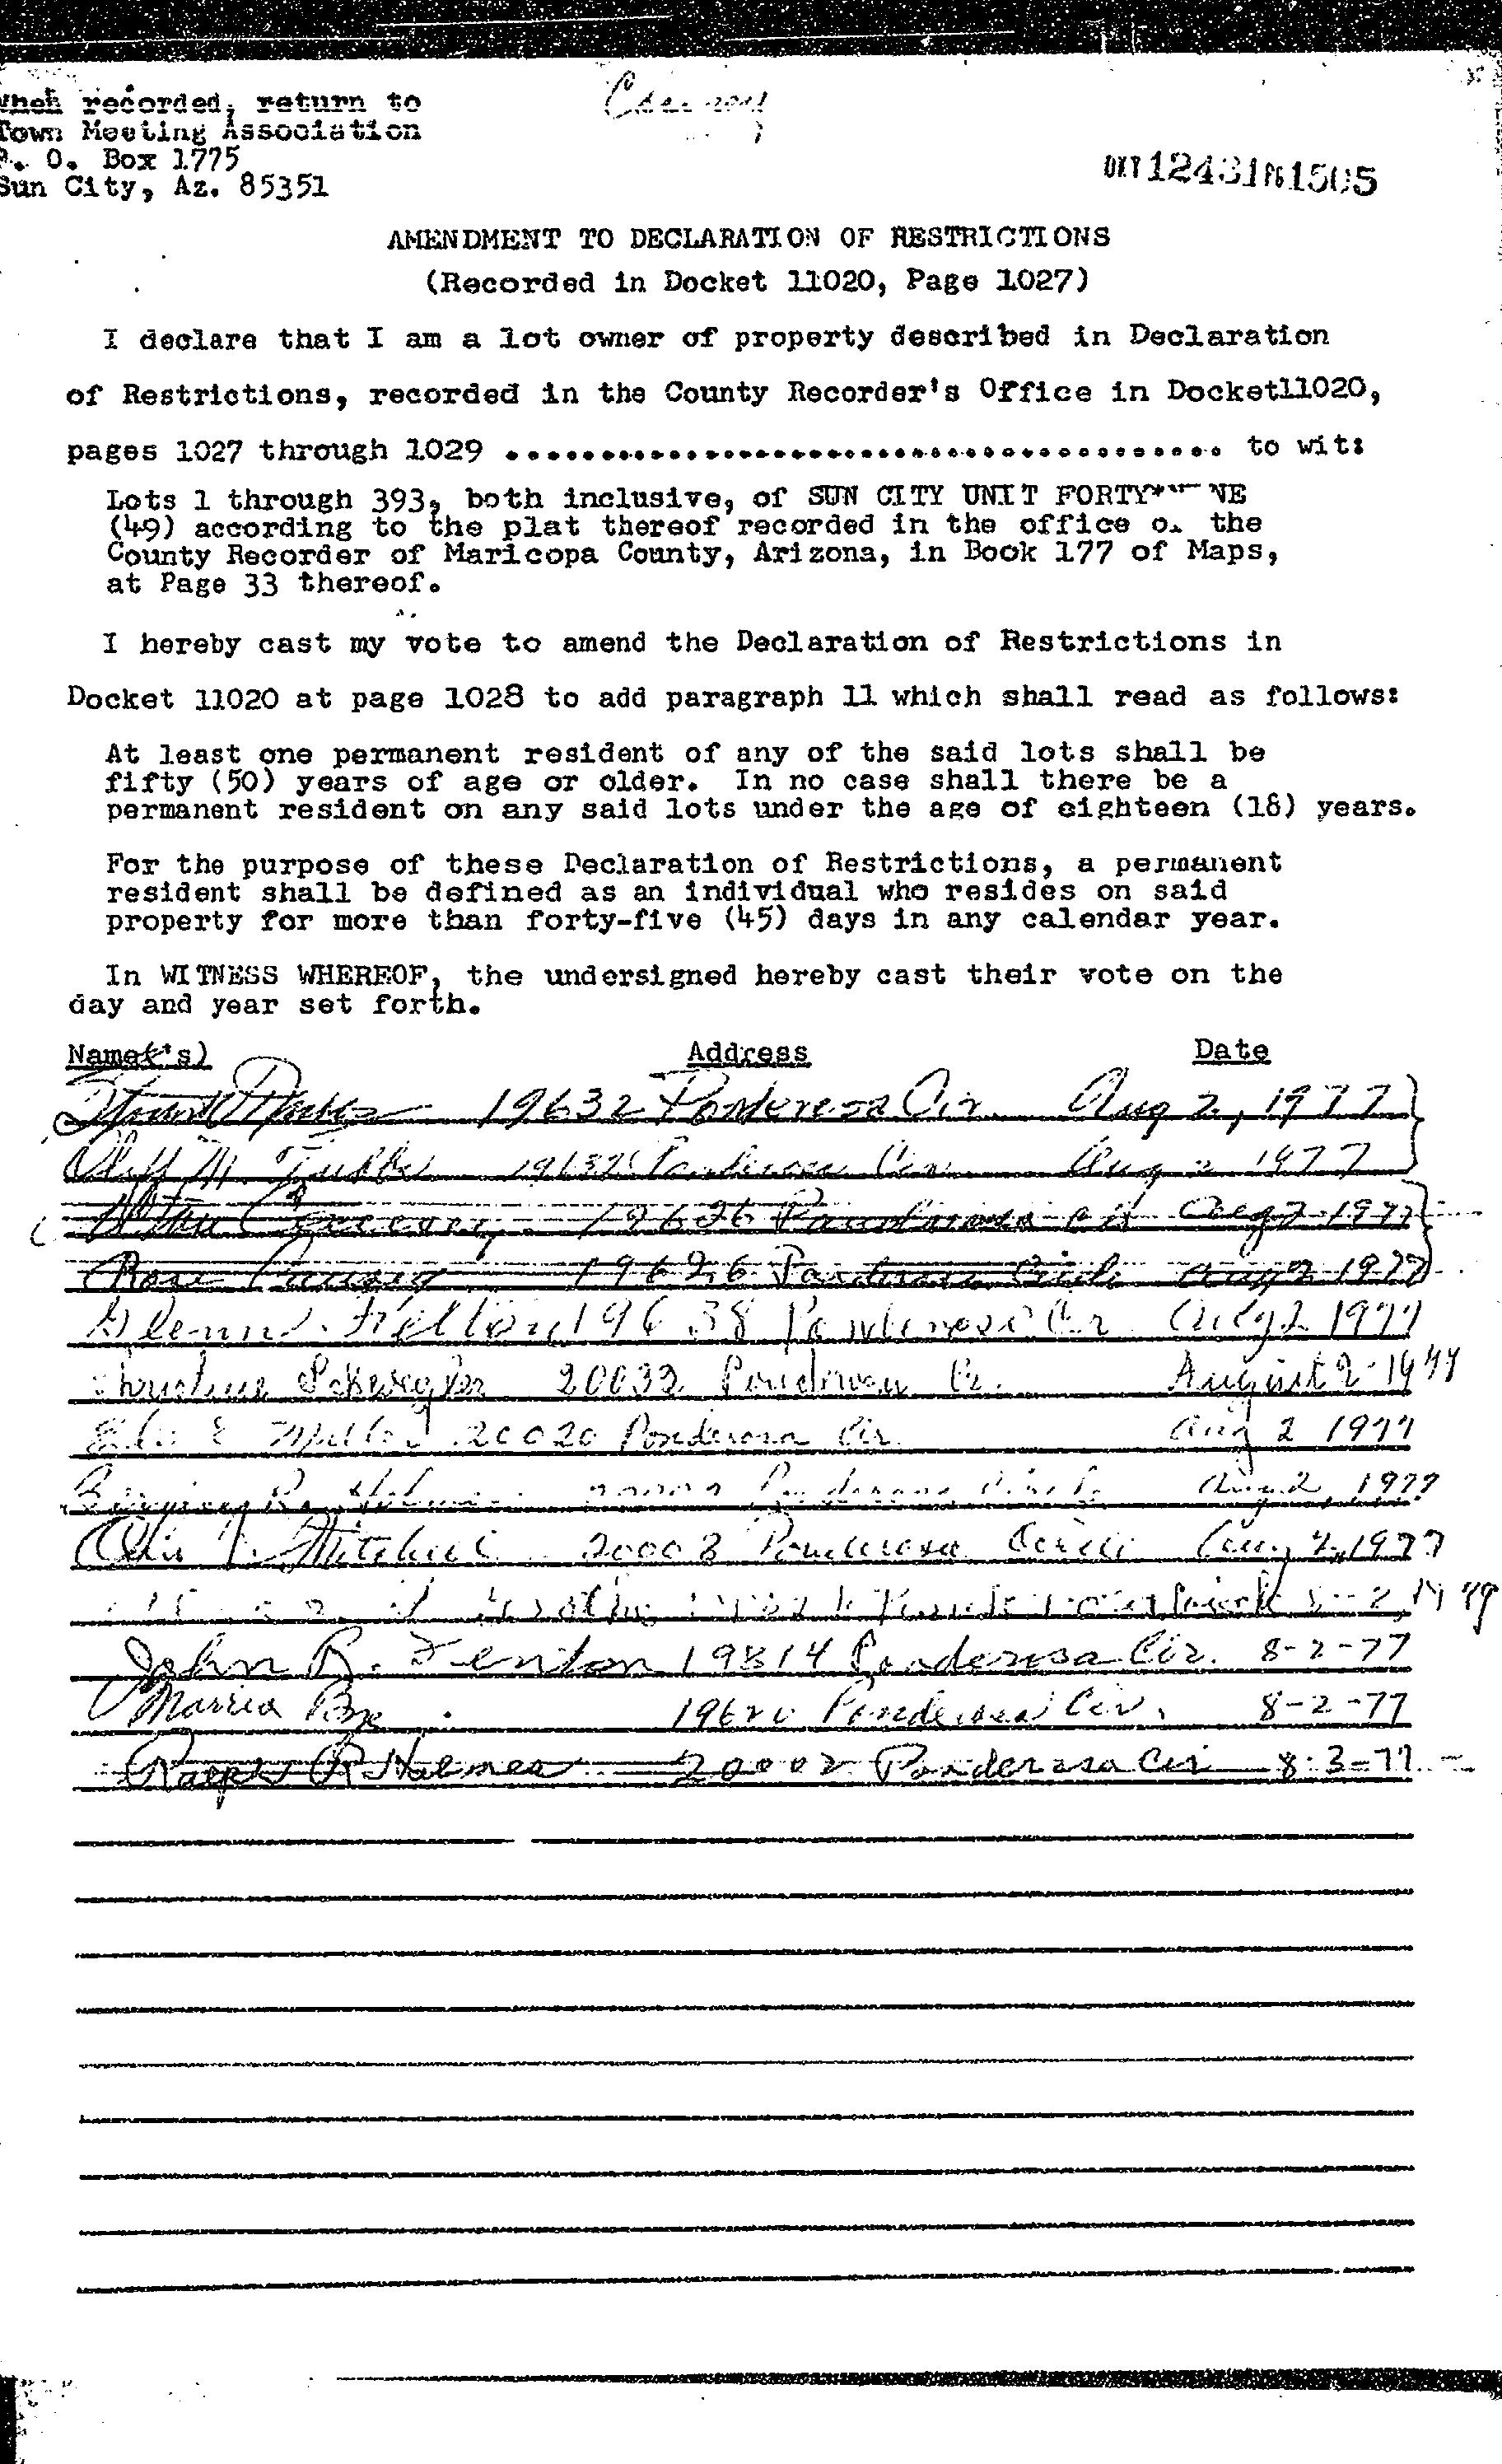 When recorded, return to
Town Meeting Association
P. O. Box 1775
Sun City, Az. 85351
DKT 12431 PG 1505
AMENDMENT TO DECLARATION OF RESTRICTIONS
(Recorded in Docket 11020, Page 1027)
I declare that I am a lot owner of property described in Declaration
of Restrictions, recorded in the County Recorder's Office in Docket11020,
pages 1027 through 1029 ...................................... to wit:
Lots 1 through 393, both inclusive, of SUN CITY UNIT
(49) according to the plat thereof recorded in the office o. the
County Recorder of Maricopa County, Arizona, in Book 177 of Maps,
at Page 33 thereof.
I hereby cast my vote to amend the Declaration of Restrictions in
Docket 11020 at page 1028 to add paragraph 11 which shall read as follows:
At least one permanent resident of any of the said lots shall be
fifty (50) years of age or older. In no case shall there be a
permanent resident on any said lots under the age of eighteen (18) years.
For the purpose of these Declaration of Restrictions, a permanent
resident shall be defined as an individual who resides on said
property for more than forty-five (45) days in any calendar year.
In WITNESS WHEREOF, the undersigned hereby cast their vote on the
day and year set forth.
Name('s) Address Date
19632 Ponderosa Cir. Aug 2, 1977
Aug 2 1977
19626 1977
Rose 19626 Aug 2 1977
Glenn 19638 1977
20032 August 2-1977
Miller 20020 Ponderosa Cir. Aug 2 1977
Aug 2, 1977
20008 Ponderosa 1977
John R. Fenton 19814 Ponderosa Cir. 8-2-77
Ponderosa Cir. 8-2-77
Ralph R Holmes 20002 Ponderosa Cir 8-3-77